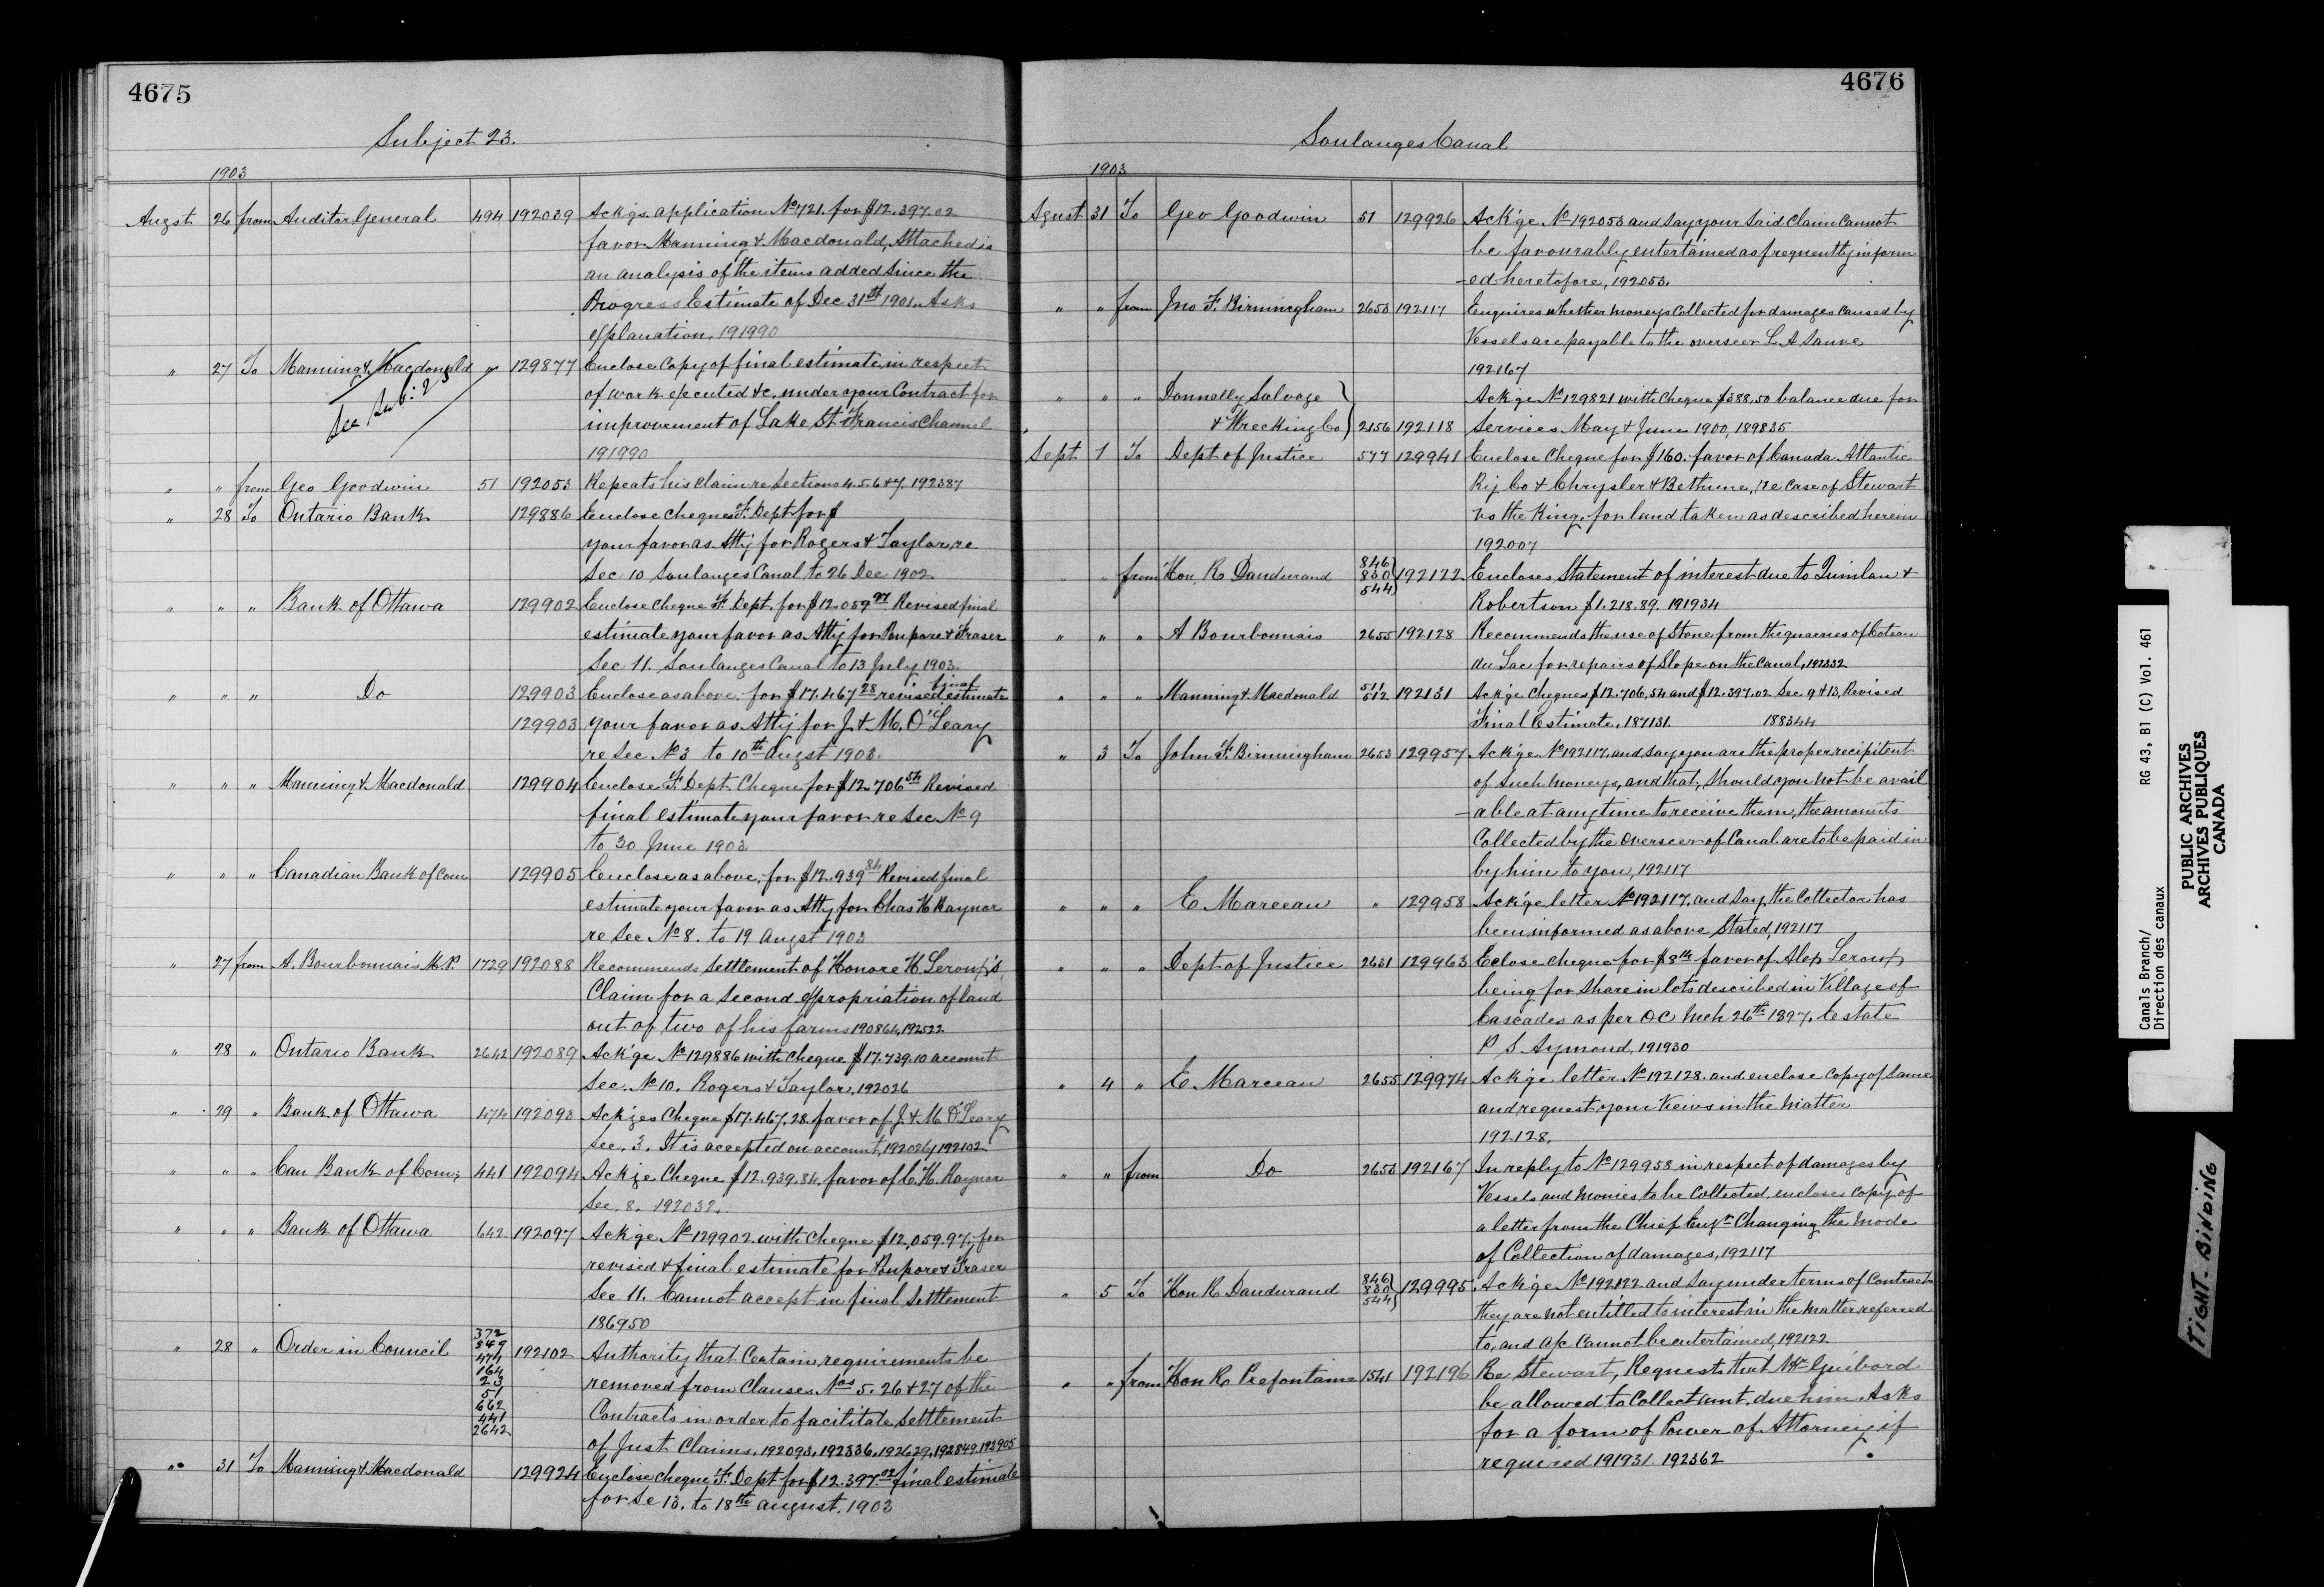 4675
Subject 23.
1903
Augst 26 from Auditor General 494 192039 Ackgs application No 721. for $12.397.02
favor Manning & Macdonald, Attached is
an analysis of the items added since the
Progress Estimate of Dec 31st 1901. Asks
explanation, 191990
" 27 To Manning & Macdonald " 129877 Enclose Copy of final estimate in respect
of work executed &c, under your Contract for
See Sub: 25
improvement of Lake St Francis Channel
191990
" " from Geo Goodwin 51 192053 Repeats his Claim re Sections 4.5.6 & 7. 192387
" 28 To Ontario Bank 129886 Enclose cheques F. Dept for $
your favor as Atty for Rogers & Taylor, re
Sec 10 Soulanges Canal to 26 Dec 1902.
" " " Bank of Ottawa 129902 Enclose cheque F. Dept. for $12.059 97 Revised final
estimate your favor as Atty for Poupore & Fraser
Sec 11. Soulanges Canal to 13 July 1903.
" " " Do 129903 Enclose as above. for $17.467 28 revised final estimate
129903 your favor as Atty for J. & M. O'Leary
re Sec No 3 to 10th Augst 1903.
" " " Manning & Macdonald 129904 Enclose F. Dept Cheque for $12.706 54 Revised
final estimate your favor re Sec No 9
to 30 June 1903
" " " Canadian Bank of Com 129905 Enclose as above, for $12.939 84 Revised final
estimate your favor as Atty for Chas H Raynor
re Sec No 8. to 19 Augst 1903
" 27 from A. Bourbonnais M.P. 1729 192088 Recommends Settlement of Honore H. Leroux's
Claim for a Second expropriation of land
out of two of his farms 190864, 192522
" 28 " Ontario Bank 2642 192089 Ack'ge No 129886 with cheque $17.739.10 account
Sec. No 10. Rogers & Taylor, 192026
" 29 " Bank of Ottawa 474 192093 Ack'ges Cheque $17.467.28. favor of J. & M. O'Leary
Sec. 3. It is accepted on account, 192102
" " " Can Bank of Com; 441 192094 Ack'ge Cheque $12.939.84. favor of C. H. Raynor
Sec. 8. 192032.
" " " Bank of Ottawa 642 192097 Ack'ge No 129902 with cheque $12,059.97, for
revised & final estimate for Poupore & Fraser
Sec 11. Cannot accept in final Settlement
186950
" 28 " Order in Council 372 192102 Authority that Certain requirements be
474
164
23
51
662
441
2642
removed from Clauses Nos 5. 26 & 27 of the
Contracts in order to facilitate Settlement
of Just Claims, 192093, 192336, 192629, 192849, 192905
" 31 To Manning & Macdonald 129924 Enclose cheque F. Dept for $12.397.02 final estimate
for Se 13. to 18th August. 1903
4676
Soulanges Canal
1903
Agust 31 To Geo Goodwin 51 129926 Ack'ge No 192053 and say your Said Claim Cannot
be favourably entertained as frequently inform
-ed heretofore, 192053.
" " from Jno F. Birmingham 2653 192117 Enquires whether moneys Collected for damages caused by
Vessels are payable to the overseer L. A Sauve
192167
" " " Donnelly Salvage } Ack'ge No 129821 with Cheque $388,50 balance due for
& Wrecking Co } 2156 192118 Services May & June 1900, 189835
Sept 1 To Dept of Justice 577 129941 Enclose Cheque for $160. favor of Canada Atlantic
Ry Co & Chrysler & Bethune, re Case of Stewart
vs the King. for land taken as described herein
192007
" " from Hon. R Dandurand 846 830 544 } 192122 Encloses Statement of interest due to Quinlan &
Robertson $1.218.89. 191934
" " " A Bourbonnais 2655 192128 Recommends the use of Stone from the quarries of Coteau
du Lac for repairs of Slope on the Canal, 192332
" " " Manning & Macdonald 511 512 192131 Ack'ge Cheques $12.706,54 and $12.397.02 Sec 9 & 13, Revised
Final Estimate, 187131. 188344
" 3 To John F. Birmingham 2653 129957 Ack'ge No 192117. and say you are the proper recipitent
of Such moneys, and that, should you not be avail
-able at any time to receive them, the amounts
Collected by the Overseer of Canal are to be paid in
by him to you, 192117
" " " E Marceau " 129958 Ack'ge letter No 192117. and say, the Collector has
been informed as above Stated, 192117
" " " Dept of Justice 2631 129963 Eclose cheque for favor of Alex Leroux
being for Share in lots described in Village of
Cascades as per OC Mch 26th 1897. Estate
P S Aymond. 191930
" 4 " E Marceau 2655 129974 Ack'ge letter No 192128. and enclose Copy of Same
and request your Views in the matter
192128.
" " from Do 2653 192167 In reply to No 129958 in respect of damages by
Vessels and Monies to be Collected, encloses Copy of
a letter from the Chief Engr Changing the mode
of Collection of damages, 192117
" 5 To Hon R Dandurand 846 830 544 } 129995 Ack'ge No 192122 and Say under terms of Contract
they are not entitled to interest in the matter referred
to, and a/c Cannot be entertained, 192122
" " from Hon R. Prefontaine 1541 192196 Re Stewart, Requests that Mr Guibord
be allowed to Collect amt. due him. Asks
for a form of Power of Attorney if
required 191931. 192362
Canals Branch/ RG 43, B1 (C) Vol. 461
Direction des canaux
PUBLIC ARCHIVES
ARCHIVES PUBLIQUES
CANADA
TIGHT BINDING